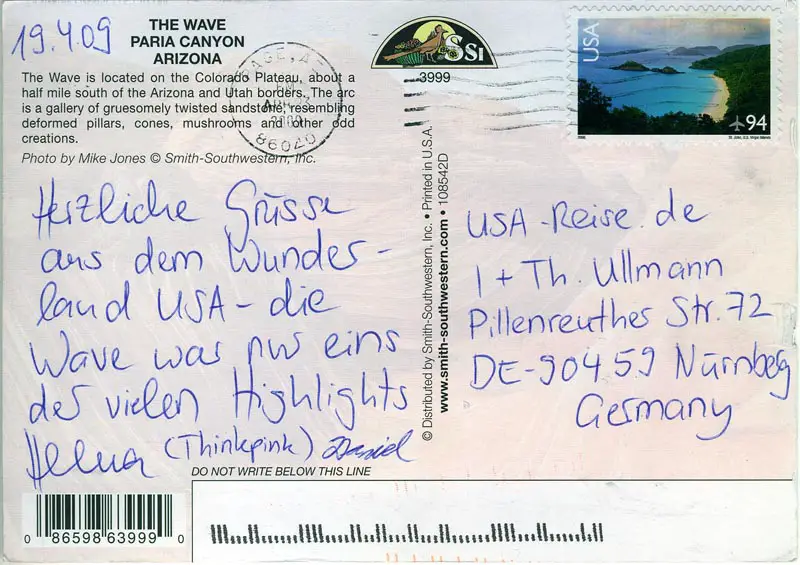 19.4.09
THE WAVE
PARIA CANYON
ARIZONA
The Wave is located on the Colorado Plateau, about a
half mile south of the Arizona and Utah borders. The arc
is a gallery of gruesomely twisted sandstone, resembling
deformed pillars, cones, mushrooms and other odd
creations.
Photo by Mike Jones © Smith-Southwestern, Inc.
PAGE, A
PM
2009
86040
SSI
3999
USA
94
Herzliche Grüsse
aus dem Wunder-
land USA - die
Wave war nur eins
der vielen Highlights
(Thinkpink) Daniel
© Distributed by Smith-Southwestern, Inc. • Printed in U.S.A.
www.smith-southwestern.com • 108542D
USA-Reise.de
I + Th. Ullmann
Pillenreuther Str. 72
DE-90459 Nürnberg
Germany
DO NOT WRITE BELOW THIS LINE
0 86598 63999 0